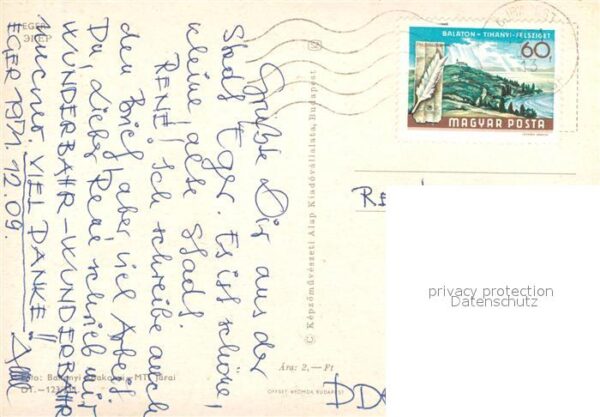 EGER
ЭГЕР
Grüße Dir aus der
Stadt Eger. Es ist schöne,
kleine, alte Stadt.
RENÉ! Ich schreibe auch
den Brief, aber viel Arbeit
Du, Lieber René schrieb mir
WUNDERBAHR-WUNDERBAHR
VIEL DANKE!!
EGER 1971. 12. 09.
Foto: MTI Járai
© Képzőművészeti Alap Kiadóvállalata, Budapest
BALATON - TIHANYI-FÉLSZIGET
60f
MAGYAR POSTA
privacy protection
Datenschutz
Ára: 2,— Ft
OFFSET-NYOMDA BUDAPEST
DD